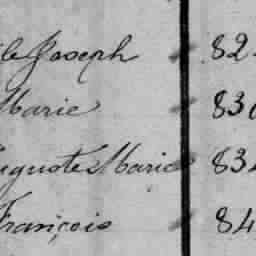 le Joseph 82
Marie 830
uguote Marie 83
François 84